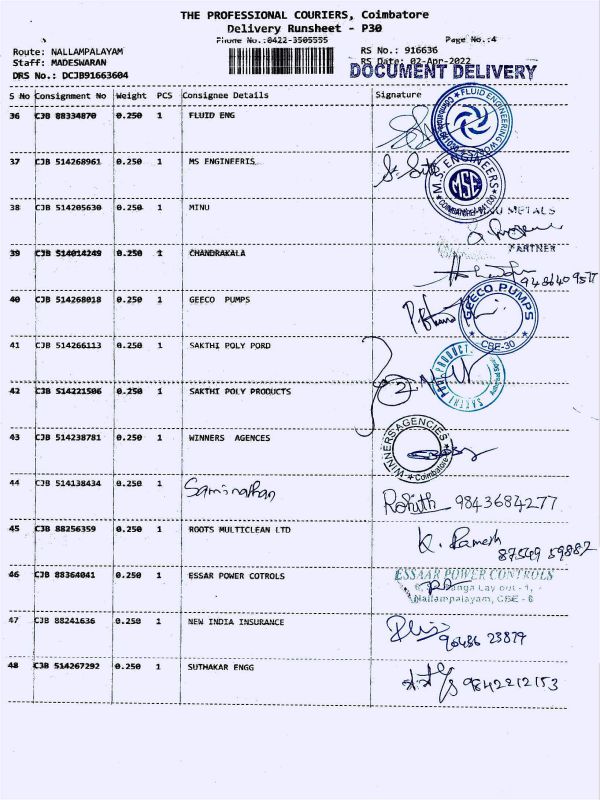 THE PROFESSIONAL COURIERS, Coimbatore
Delivery Runsheet - P30
Phone No.:0422-3505555 Page No.:4
Route: NALLAMPALAYAM RS No.: 916636
Staff: MADESWARAN RS Date: 02-Apr-2022
DRS No.: DCJB91663604 DOCUMENT DELIVERY
S No Consignment No Weight PCS Consignee Details Signature
36 CJB 88334870 0.250 1 FLUID ENG
FLUID ENGINEERING
37 CJB 514268961 0.250 1 MS ENGINEERIS
M.S. ENGINEERS
MSE
38 CJB 514205630 0.250 1 MINU
METALS
PARTNER
39 CJB 514014249 1 CHANDRAKALA
9486409577
40 CJB 514268018 0.250 1 GEECO PUMPS
GEECO PUMPS
CBE-30
41 CJB 514266113 0.250 1 SAKTHI POLY PORD
42 CJB 514221506 0.250 1 SAKTHI POLY PRODUCTS
2
43 CJB 514238781 0.250 1 WINNERS AGENCES
WINNERS AGENCIES
Coimbatore
44 CJB 514138434 0.250 1 Saminathan Rohith 9843684277
45 CJB 88256359 0.250 1 ROOTS MULTICLEAN LTD K. Ramesh
87549 59882
46 CJB 88364041 0.250 1 ESSAR POWER COTROLS ESSAAR POWER CONTROLS
Nallampalayam, CBE - 6
47 CJB 88241636 0.250 1 NEW INDIA INSURANCE
90486 23879
48 CJB 514267292 0.250 1 SUTHAKAR ENGG 9842212153